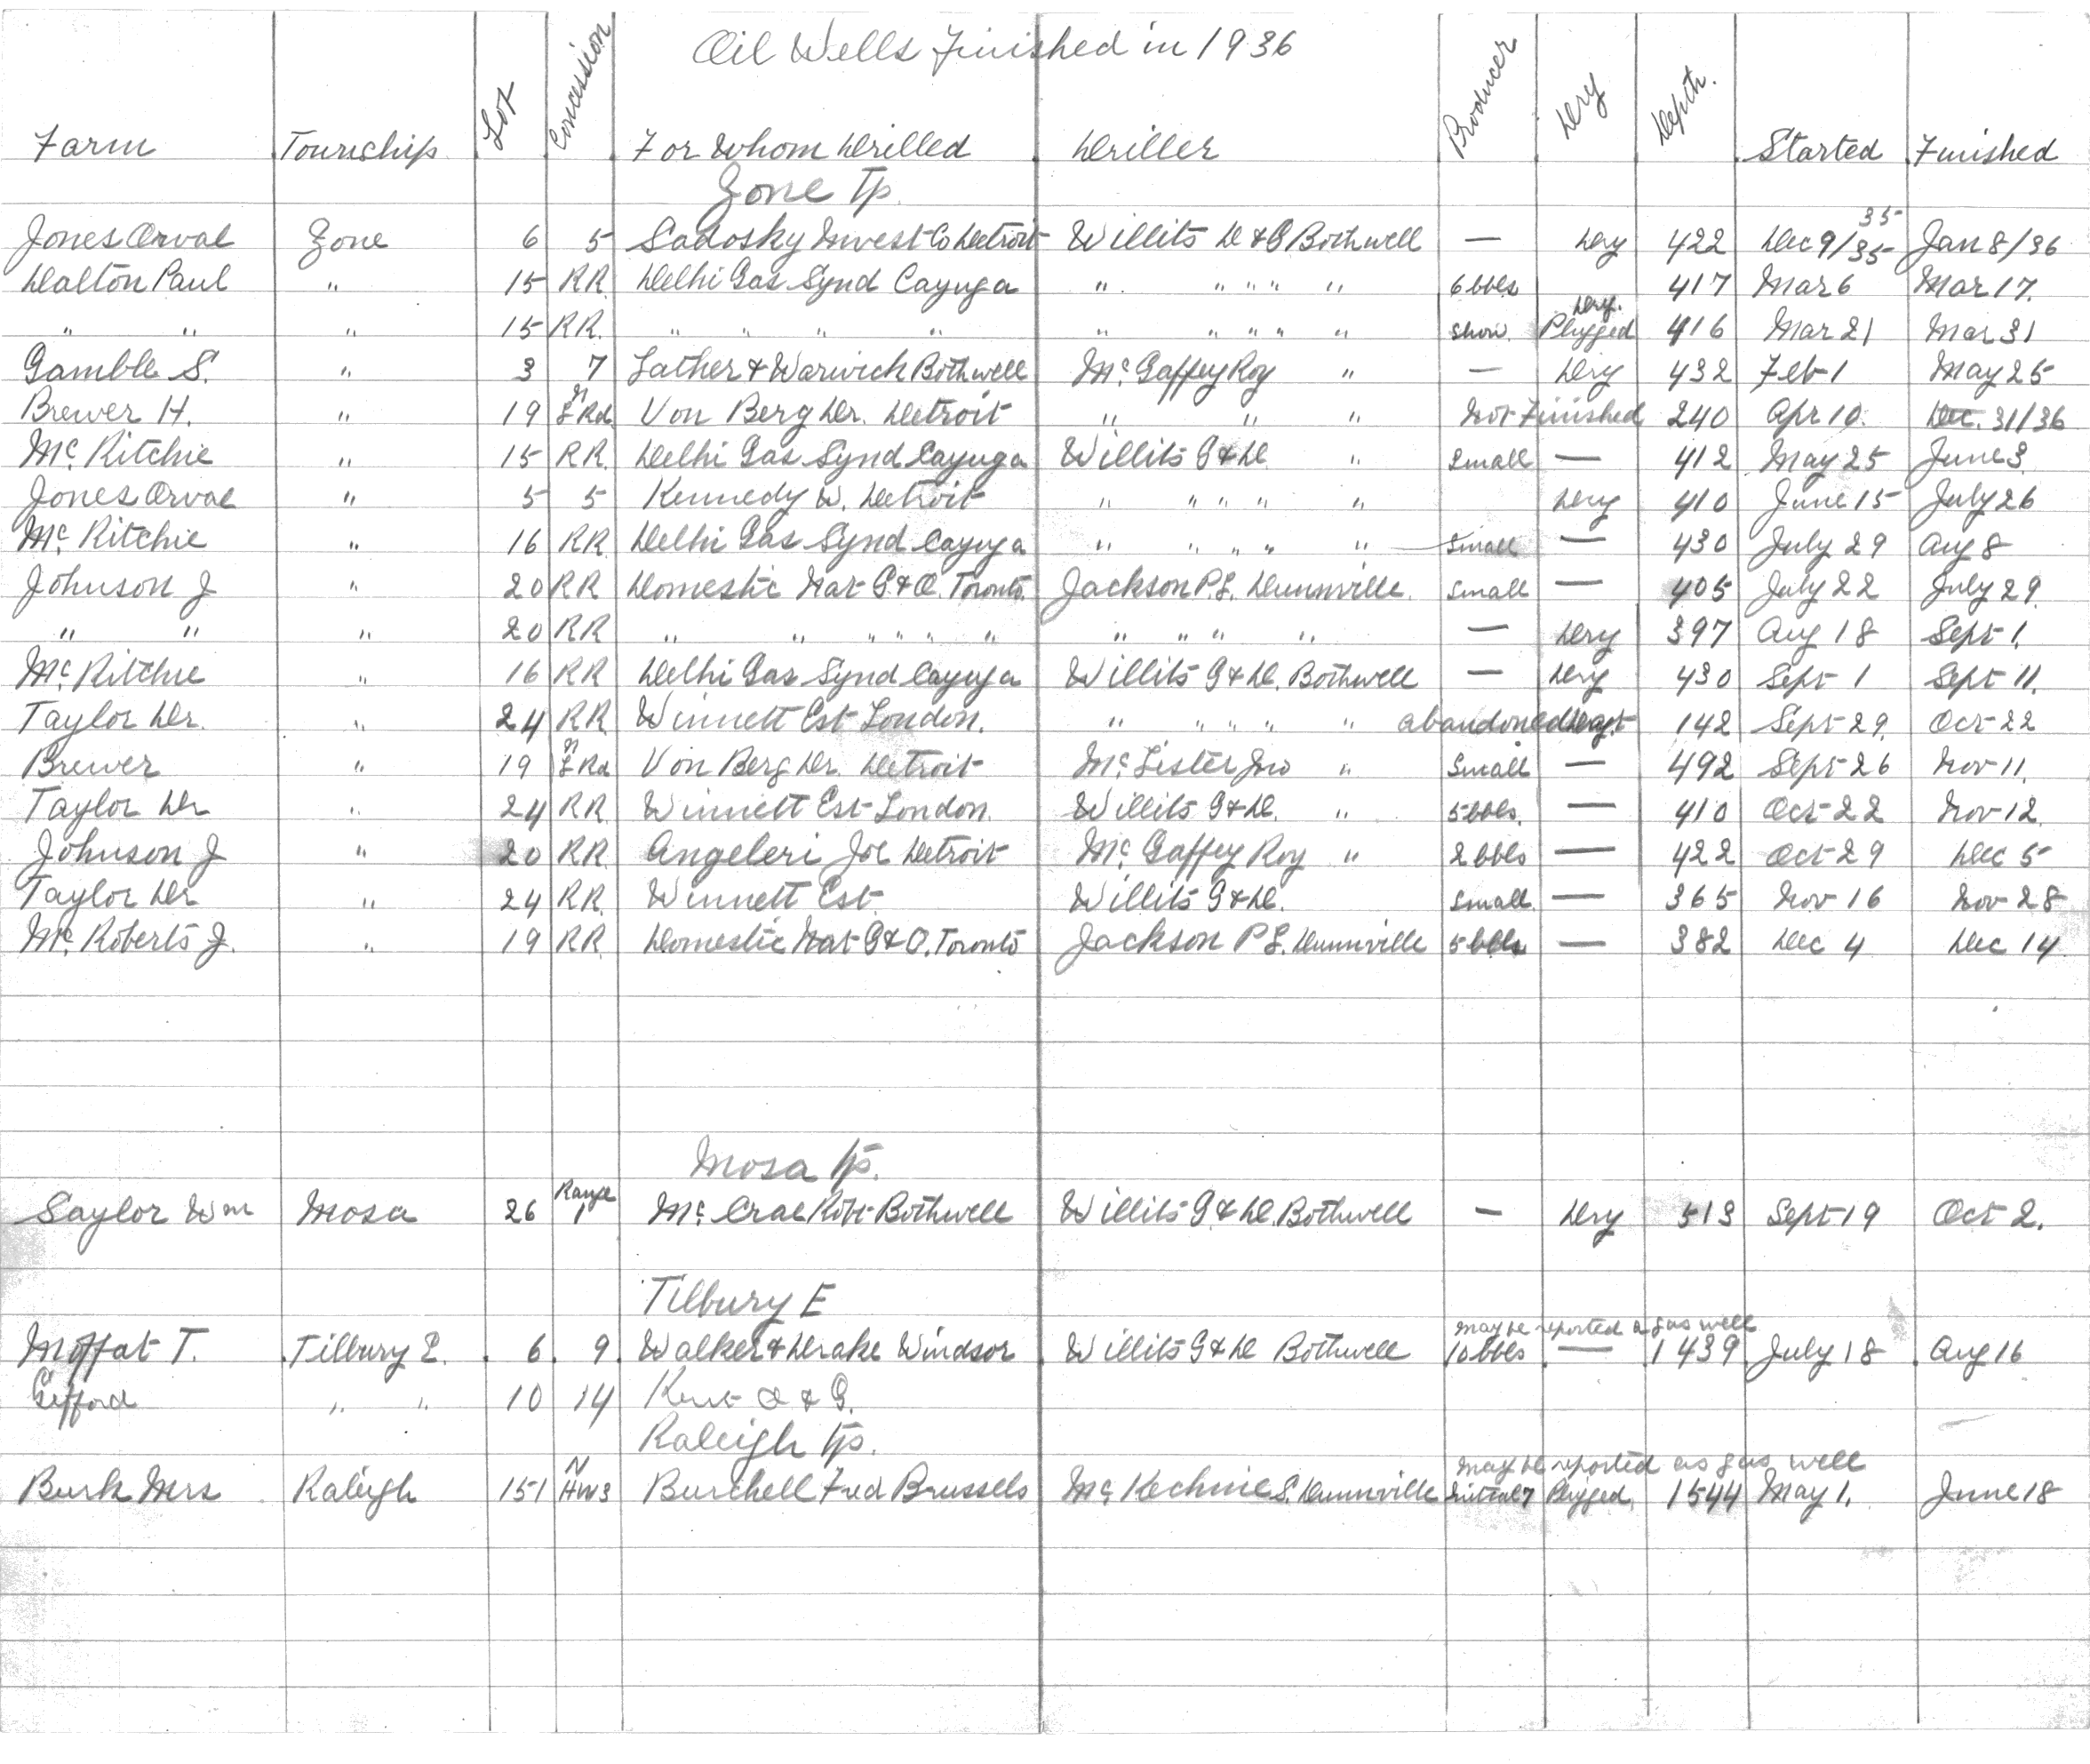 Oil Wells Finished in 1936
Farm Township Lot Concession For Whom Drilled Driller Producer Dry Depth. Started Finished
Zone Tp.
Jones Orval Zone 6 5 Sadosky Invest Co Detroit Willits D & G Bothwell — Dry 422 Dec 9/35 35 Jan 8/36
Dalton Paul " 15 RR Delhi Gas Synd Cayuga " " " " " 6 bbls 417 Mar 6 Mar 17.
" " " 15 RR. " " " " " " " " " Show. Dry. Plugged 416 Mar 21 Mar 31
Gamble S. " 3 7 Lather & Warwick Bothwell Mc Gaffey Roy " — Dry 432 Feb 1 May 25
Brewer H. " 19 L Rd. Von Berg Dr. Detroit " " " Not Finished 240 Apr 10. Dec. 31/36
Mc Ritchie " 15 RR. Delhi Gas Synd Cayuga Willits G & D. " Small — 412 May 25 June 3.
Jones Orval " 5 5 Kennedy W. Detroit " " " " " Dry 410 June 15 July 26
Mc Ritchie " 16 RR Delhi Gas Synd Cayuga " " " " " Small — 430 July 29 Aug 8
Johnson J " 20 RR Domestic Nat G & O. Toronto. Jackson P.L. Dunnville. Small — 405 July 22 July 29.
" " " 20 RR " " " " " " " " " " — Dry 397 Aug 18 Sept 1.
Mc Ritchie " 16 RR Delhi Gas Synd Cayuga Willits G & D. Bothwell — Dry 430 Sept 1 Sept 11.
Taylor Dr. " 24 RR. Winnett Est London. " " " " " abandoned 142 Sept 29. Oct 22
Brewer " 19 L Rd Von Berg Dr. Detroit Mc Lister Jno " Small — 492 Sept 26 Nov 11.
Taylor Dr " 24 RR. Winnett Est London. Willits G & D. " 5 bbls. — 410 Oct 22 Nov 12.
Johnson J " 20 RR. Angeleri Joe Detroit Mc Gaffey Roy " 2 bbls — 422 Oct 29 Dec 5
Taylor Dr " 24 RR. Winnett Est. Willits G & D. Small. — 365 Nov 16 Nov 28
Mc Roberts J. " 19 RR. Domestic Nat G & O. Toronto Jackson P L. Dunnville 5 bbls — 382 Dec 4 Dec 14.
Mosa Tp.
Saylor Wm Mosa 26 Range 1 Mc Crae Robt Bothwell Willits G & D. Bothwell — Dry 513 Sept 19 Oct 2.
Tilbury E
may be reported a gas well
Moffat T. Tilbury E. 6. 9. Walker & Drake Windsor Willits G & D Bothwell 10 bbls — 1439 July 18 Aug 16
Gifford " " 10 14 Kent O & G.
Raleigh Tp.
may be reported as gas well
Burk Mrs Raleigh 151 N HW3 Burchell Fred Brussels Mc Kechnie S. Dunnville Initial 7 Plugged. 1544 May 1. June 18